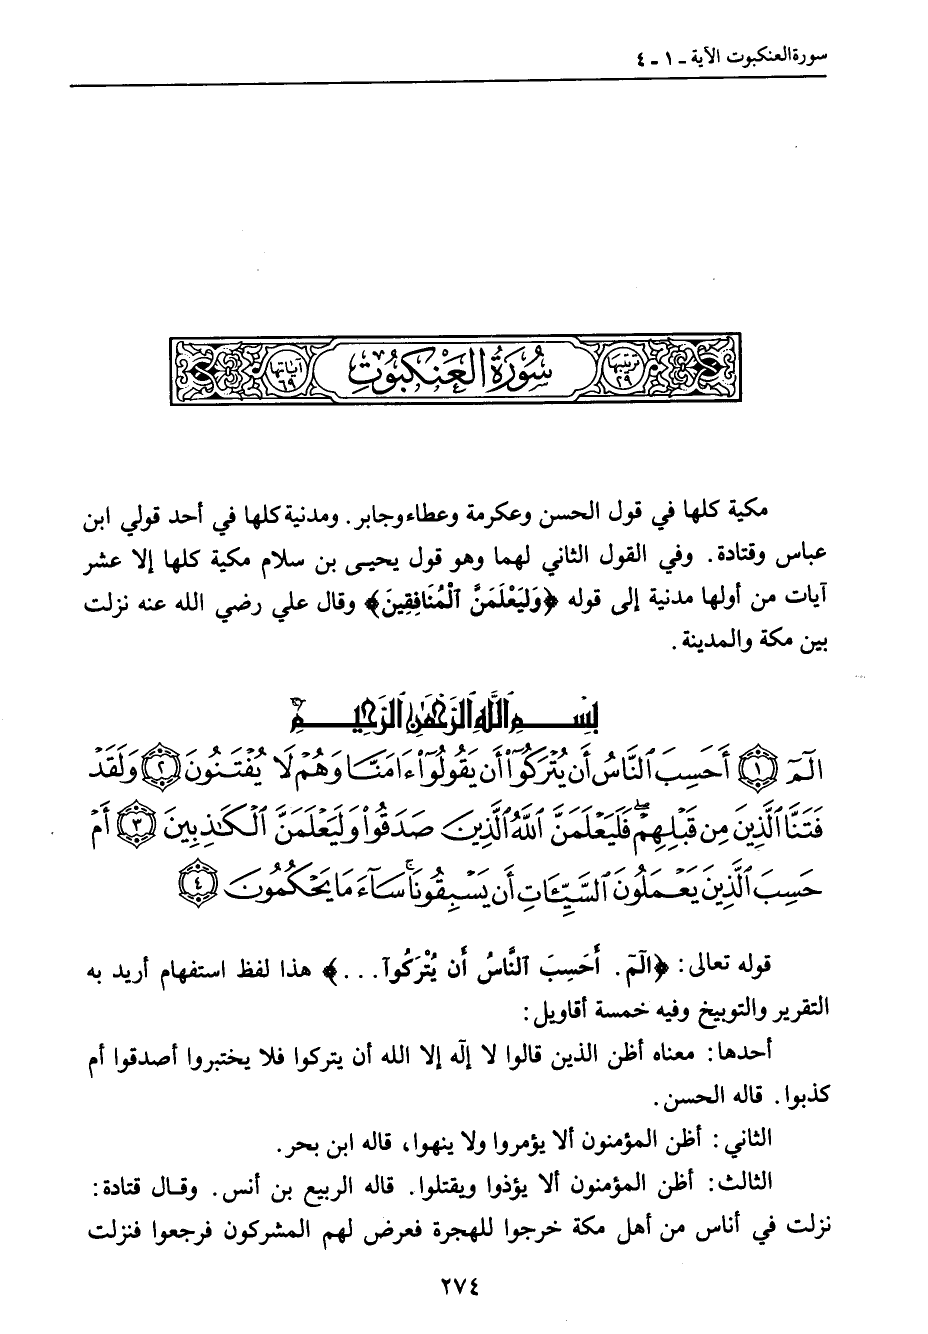 سورة العنكبوت الآية ـ ١ ـ ٤
ترتيبها ٢٩
سُورَةُ الْعَنْكَبُوتِ
آياتها ٦٩
مكية كلها في قول الحسن وعكرمة وعطاء وجابر. ومدنية كلها في أحد قولي ابن
عباس وقتادة. وفي القول الثاني لهما وهو قول يحيى بن سلام مكية كلها إلا عشر
آيات من أولها مدنية إلى قوله ﴿وَلَيَعْلَمَنَّ ٱلْمُنَافِقِينَ﴾ وقال علي رضي الله عنه نزلت
بين مكة والمدينة.
بِسْمِ ٱللَّهِ ٱلرَّحْمَٰنِ ٱلرَّحِيمِ
الٓمٓ ١ أَحَسِبَ ٱلنَّاسُ أَن يُتْرَكُوٓا۟ أَن يَقُولُوٓا۟ ءَامَنَّا وَهُمْ لَا يُفْتَنُونَ ٢ وَلَقَدْ
فَتَنَّا ٱلَّذِينَ مِن قَبْلِهِمْ ۖ فَلَيَعْلَمَنَّ ٱللَّهُ ٱلَّذِينَ صَدَقُوا۟ وَلَيَعْلَمَنَّ ٱلْكَٰذِبِينَ ٣ أَمْ
حَسِبَ ٱلَّذِينَ يَعْمَلُونَ ٱلسَّيِّـَٔاتِ أَن يَسْبِقُونَا ۚ سَآءَ مَا يَحْكُمُونَ ٤
قوله تعالى: ﴿الٓمٓ. أَحَسِبَ ٱلنَّاسُ أَن يُتْرَكُوٓا...﴾ هذا لفظ استفهام أريد به
التقرير والتوبيخ وفيه خمسة أقاويل:
أحدها: معناه أظن الذين قالوا لا إلٰه إلا الله أن يتركوا فلا يختبروا أصدقوا أم
كذبوا. قاله الحسن.
الثاني: أظن المؤمنون ألا يؤمروا ولا ينهوا، قاله ابن بحر.
الثالث: أظن المؤمنون ألا يؤذوا ويقتلوا. قاله الربيع بن أنس. وقال قتادة:
نزلت في أناس من أهل مكة خرجوا للهجرة فعرض لهم المشركون فرجعوا فنزلت
٢٧٤